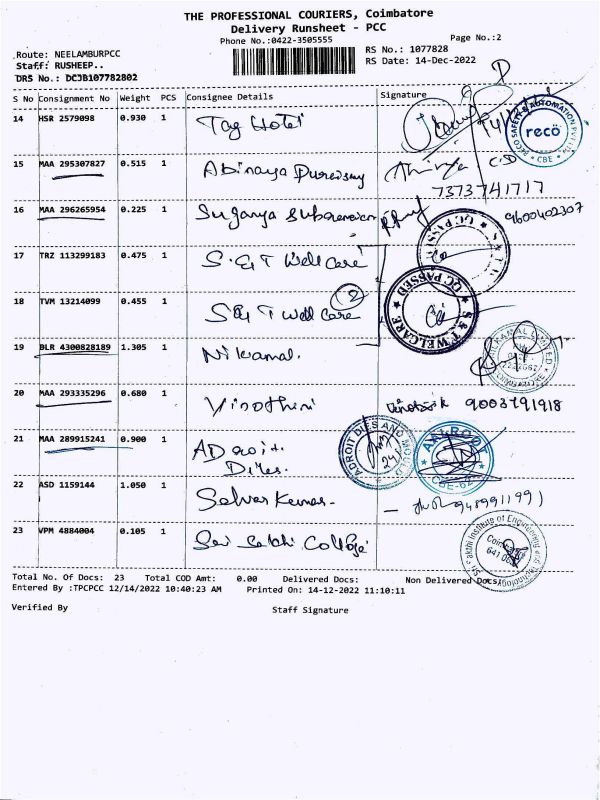 THE PROFESSIONAL COURIERS, Coimbatore
Delivery Runsheet - PCC
Phone No.:0422-3505555
Page No.:2
Route: NEELAMBURPCC
RS No.: 1077828
Staff: RUSHEEP..
RS Date: 14-Dec-2022
DRS No.: DCJB107782802
S No Consignment No Weight PCS Consignee Details Signature
14 HSR 2579098 0.930 1 Tag Hotel
RECO SAFETY & AUTOMATION PVT LTD
reco
CBE
15 MAA 295307827 0.515 1 Abinaya
7373741717
16 MAA 296265954 0.225 1 Suganya 9600402307
17 TRZ 113299183 0.475 1 S & T Well Care
QC PASSED
18 TVM 13214099 0.455 1 S & T Well Care
2
QC PASSED S & T WELCARE
19 BLR 4300828189 1.305 1 Nilkamal.
NILKAMAL LIMITED
20 MAA 293335296 0.680 1 Vinothini 9003791918
21 MAA 289915241 0.900 1 ADroit Dies.
ADROIT DIES AND MOULD
CBE-62
22 ASD 1159144 1.050 1 Selva Kumar.
23 VPM 4884004 0.105 1 Sri Sakthi College
Sri Sakthi Institute of Engineering and Technology
Coimbatore
Total No. Of Docs: 23 Total COD Amt: 0.00 Delivered Docs: Non Delivered Docs:
Entered By :TPCPCC 12/14/2022 10:40:23 AM Printed On: 14-12-2022 11:10:11
Verified By Staff Signature